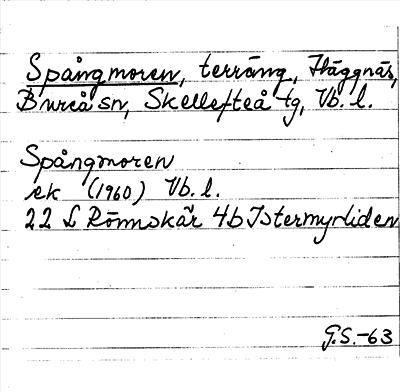 Spångmoren, terräng, Häggnäs,
Bureå sn, Skellefteå tg, Vb. l.
Spångmoren
ek (1960) Vb. l.
22 L Rönnskär 4b Istermyrliden
G.S.-63